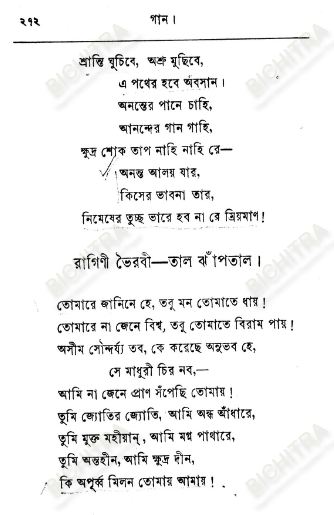 ২১২ গান।
শ্রান্তি ঘুচিবে, অশ্রু মুছিবে,
এ পথের হবে অবসান।
অনন্তের পানে চাহি,
আনন্দের গান গাহি,
ক্ষুদ্র শোক তাপ নাহি নাহি রে—
অনন্ত আলয় যার,
কিসের ভাবনা তার,
নিমেষের তুচ্ছ ভারে হব না রে ম্রিয়মাণ!
রাগিণী ভৈরবী—তাল ঝাঁপতাল।
তোমারে জানিনে হে, তবু মন তোমাতে ধায়!
তোমারে না জেনে বিশ্ব, তবু তোমাতে বিরাম পায়!
অসীম সৌন্দর্য্য তব, কে করেছে অনুভব হে,
সে মাধুরী চির নব,—
আমি না জেনে প্রাণ সঁপেছি তোমায়!
তুমি জ্যোতির জ্যোতি, আমি অন্ধ আঁধারে,
তুমি মুক্ত মহীয়ান্, আমি মগ্ন পাথারে,
তুমি অন্তহীন, আমি ক্ষুদ্র দীন,
কি অপূর্ব্ব মিলন তোমায় আমায়!
BICHITRA
BICHITRA
BICHITRA
BICHITRA
BICHITRA